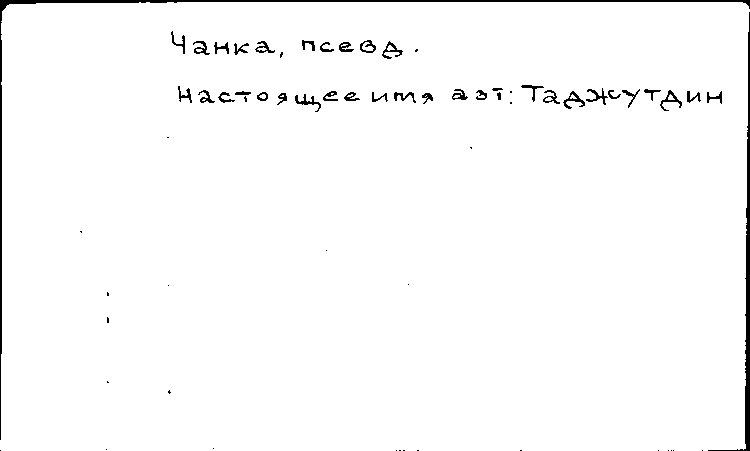 Чанка, псевд.
Настоящее имя авт: Таджутдин